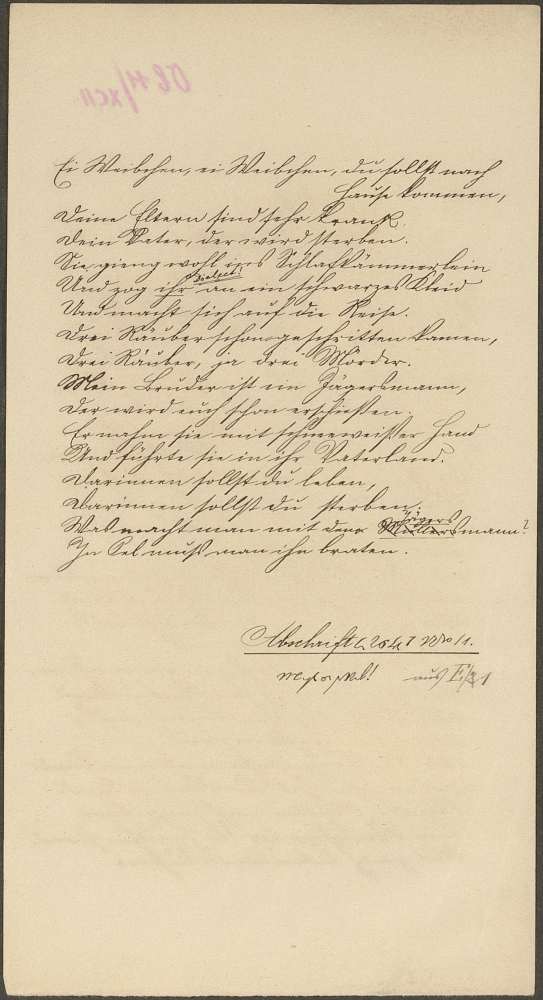 Ei Weibchen, ei Weibchen, du sollst nach
Hause kommen,
Deine Eltern sind sehr krank.
Dein Vater, der wird sterben.
Sie gieng wohl ins Schlafkämmerlein
Dialect!
Und zog ihr an ein schwarzes Kleid
Und macht sich auf die Reise.
Drei Räuber schon geschritten kamen,
Drei Räuber, ja drei Mörder.
Mein Bruder ist ein Jägersmann,
Der wird euch schon erschießen.
Er nahm sie mit schneeweißer Hand
Und führte sie in ihr Vaterland.
Darinnen sollst du leben,
Darinnen sollst du sterben.
Jägers
Was macht man mit dem Müllersmann?
In Oel muß man ihn braten.
Abschrift No 1.
aus